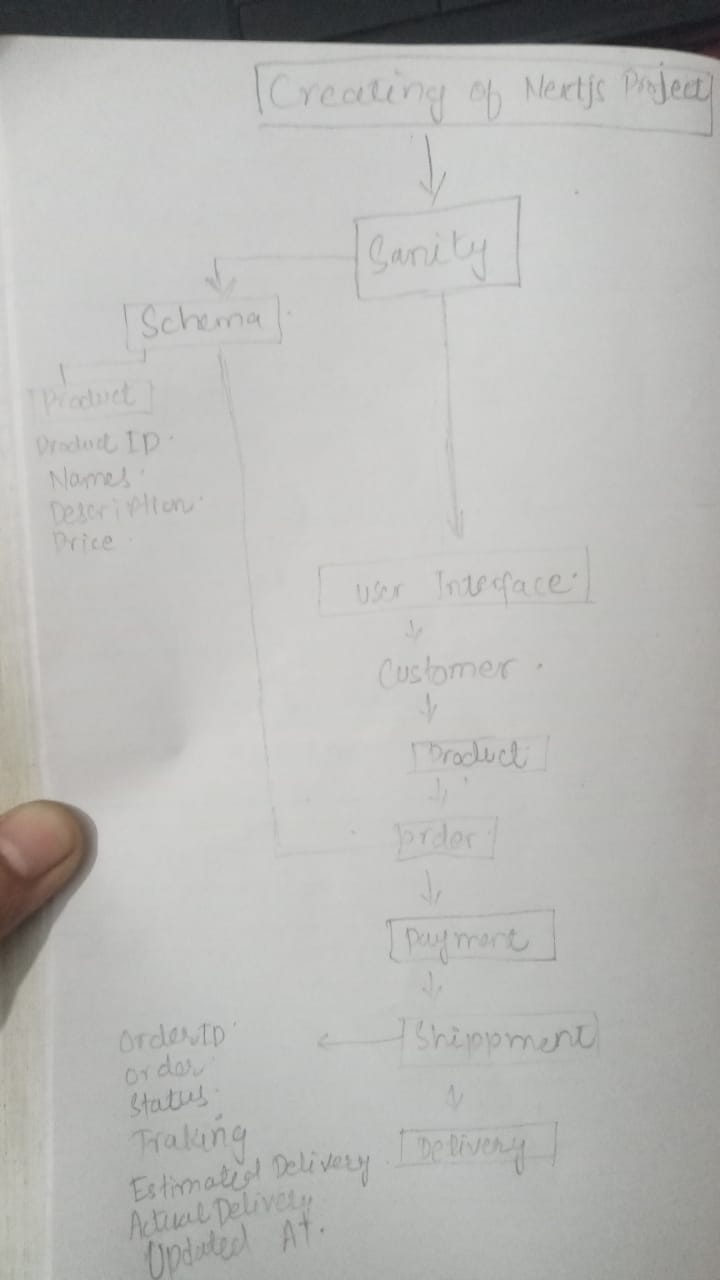 Creating of Nextjs Project
Sanity
Schema
Product
Product ID
Names
Description
Price
User Interface
Customer
Product
order
payment
Shippment
OrderID
order
Status
Traking
Estimated Delivery
Actual Delivery
Updated At.
Delivery